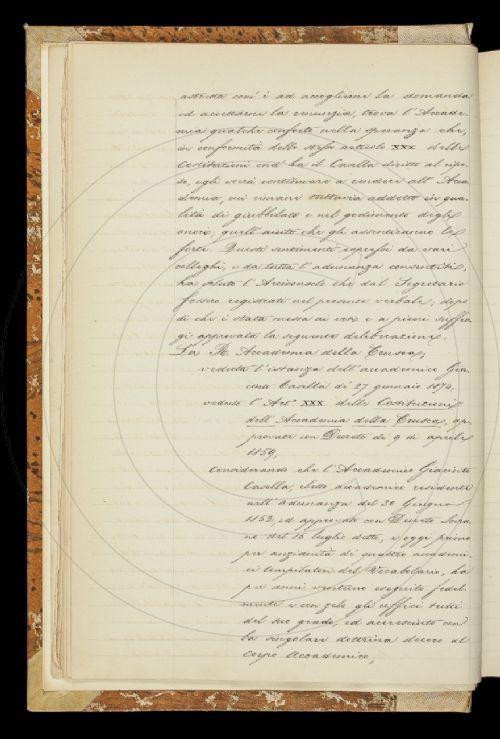 astretta com'è ad accoglierne la domanda
ed accettarne la rinunzia, trova l'Accade-
mia qualche conforto nella speranza che,
in conformità dello stesso articolo XXX delle
Costituzioni ond'ha il Casella diritto al ripo-
so, egli vorrà continuare a render all'Acca-
demia, cui rimane tuttavia addetto in qua-
lità di giubbilato e nel godimento degli
onori, quell'aiuto che gli assentiranno le
forze. Questi sentimenti espressi da vari
colleghi, e da tutta l'adunanza consentiti,
ha voluto l'Arciconsolo che dal Segretario
fossero registrati nel presente verbale, dopo
di che è stata messa ai voti e a pieni suffra-
gi approvata la seguente deliberazione.
La R. Accademia della Crusca,
veduta l'istanza dell'accademico Gia-
cinto Casella di 27 gennaio 1874,
veduto l'Art.° XXX delle Costituzioni
dell'Accademia della Crusca, ap-
provate con Decreto de' 9 di aprile
1859,
Considerando che l'Accademico Giacinto
Casella, eletto accademico residente
nell'adunanza del 30 Giugno
1852, ed approvato con Decreto Sovra-
no del 16 luglio detto, e oggi primo
per anzianità di quattro accademi-
ci compilatori del Vocabolario, ha
per anni ventuno eseguito fedel-
mente e con zelo gli uffici tutti
del suo grado, ed accresciuto con
la singolare dottrina decoro al
Corpo Accademico,